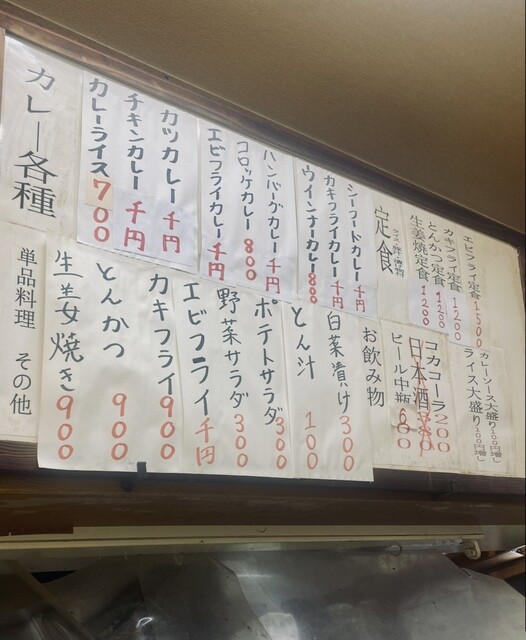 カレー各種
カレーライス 700
チキンカレー 千円
カツカレー 千円
エビフライカレー 千円
コロッケカレー 800
ハンバーグカレー 千円
ウインナーカレー 800
カキフライカレー 千円
シーフードカレー 千円
定食
生姜焼定食 1200
とんかつ定食 1200
カキフライ定食 1200
エビフライ定食 1300
単品料理 その他
生姜焼き 900
とんかつ 900
カキフライ 900
エビフライ 千円
野菜サラダ 300
ポテトサラダ 300
とん汁 100
白菜漬け 300
お飲み物
ビール中瓶
日本酒
コカコーラ 200
ライス大盛り100円増し
カレーソース大盛り